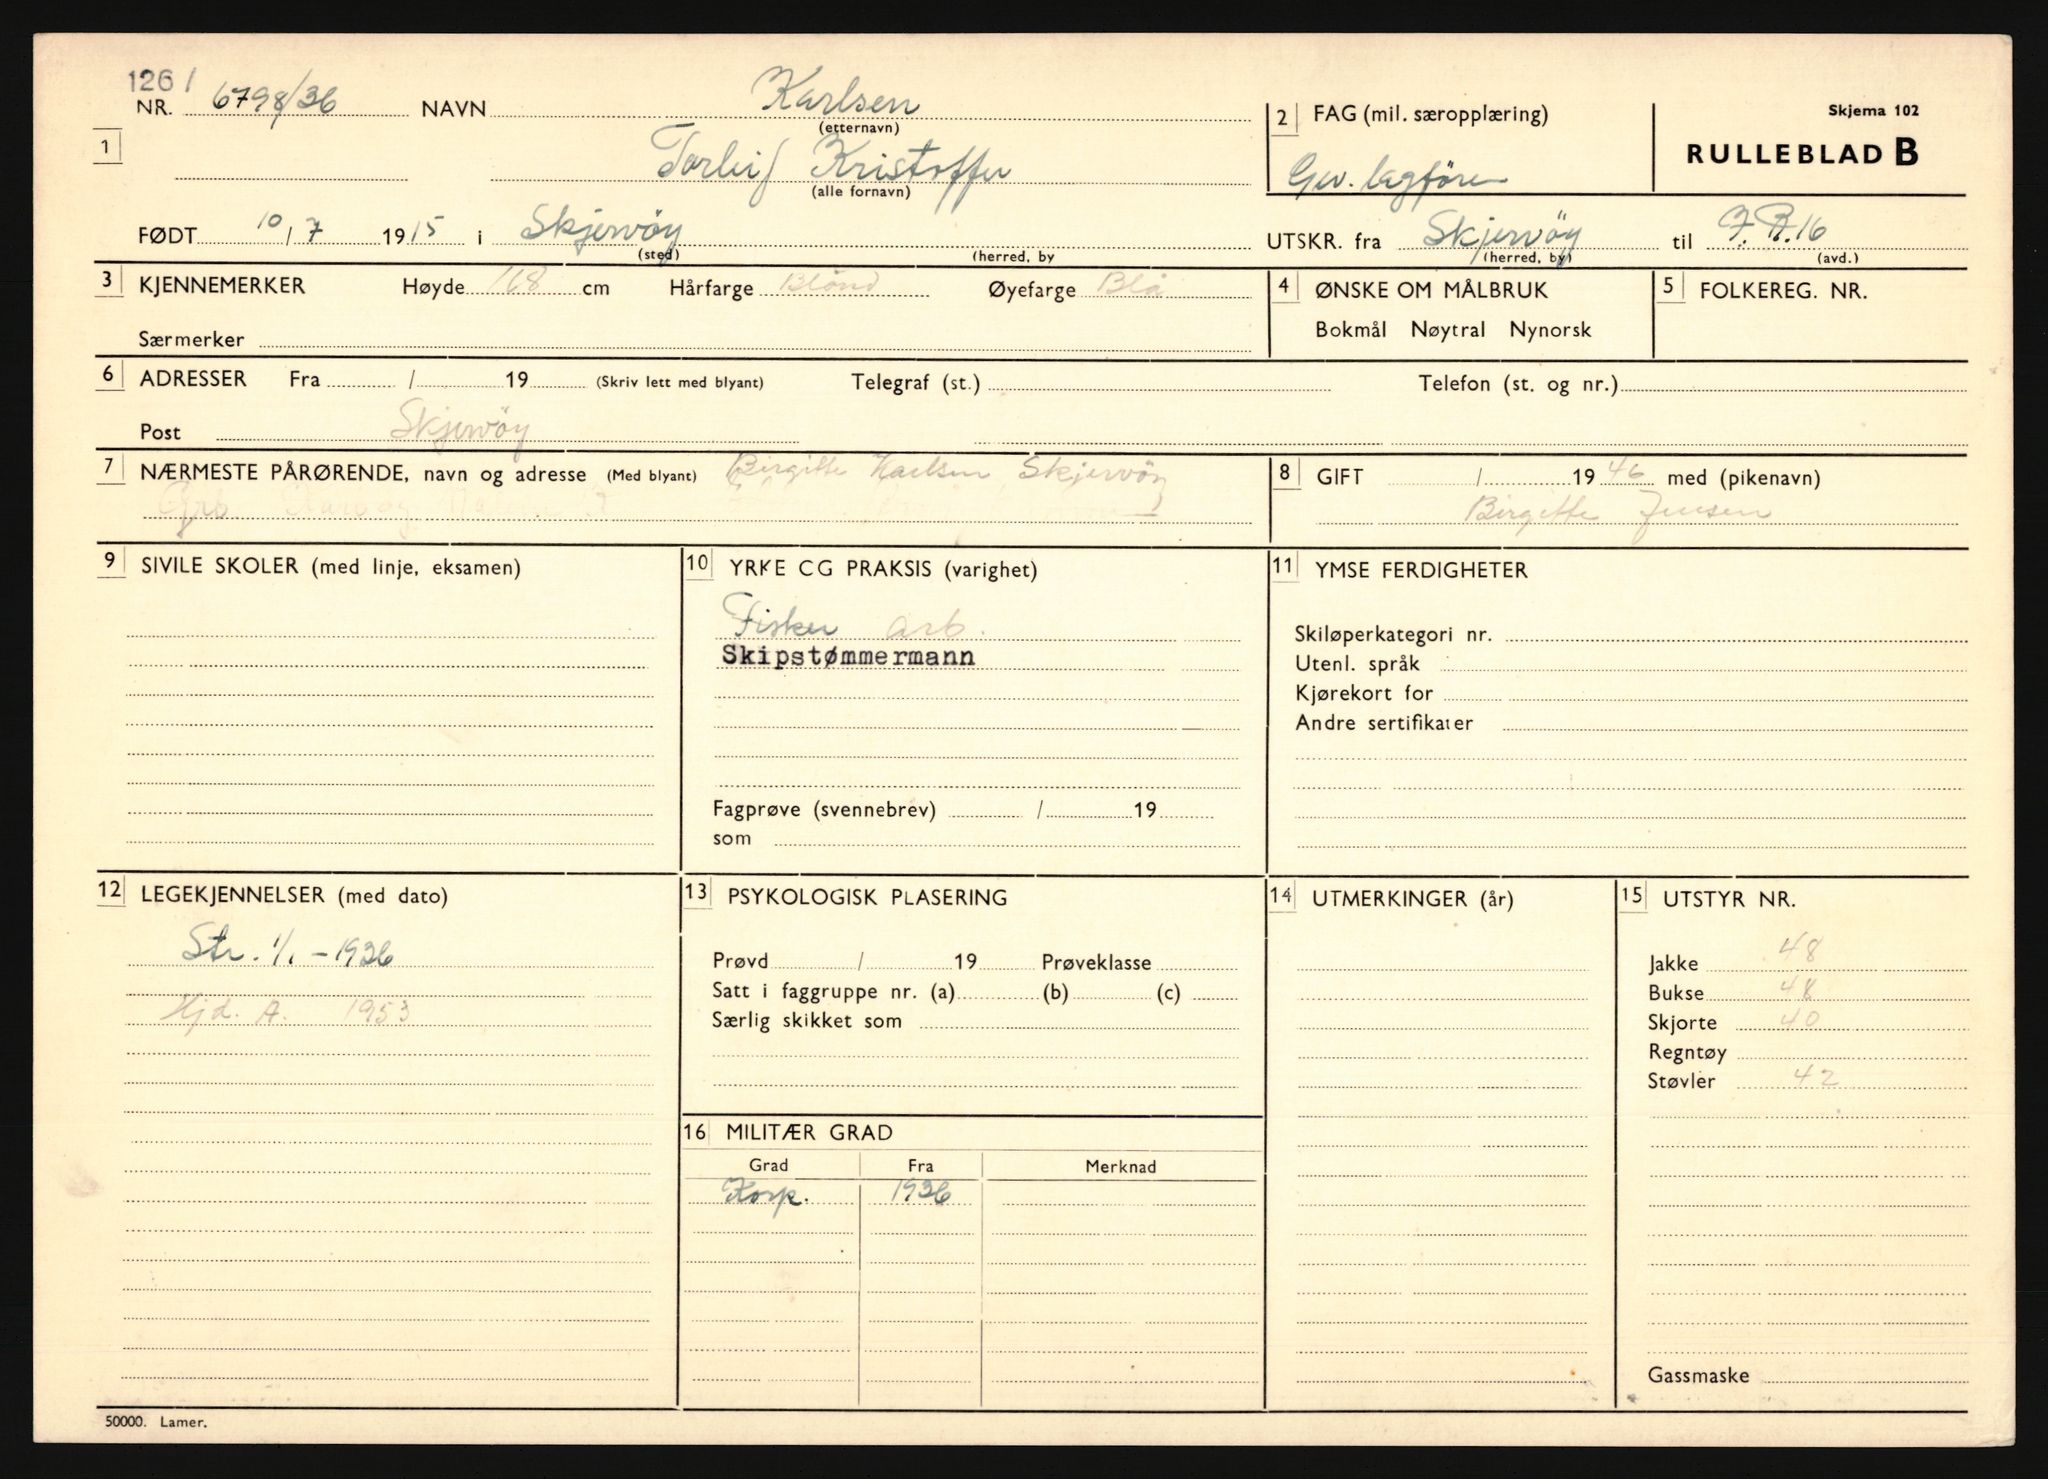 126 /
NR. 6798/36 NAVN Karlsen
(etternavn)
2 FAG (mil. særopplæring)
Skjema 102
RULLEBLAD B
1
Torleif Kristoffer
(alle fornavn)
Gev. lagförer
FØDT 10 / 7 1915 i Skjervöy
(sted) (herred, by
UTSKR. fra Skjervöy til I.R.16
(herred, by) (avd.)
3 KJENNEMERKER Høyde 168 cm Hårfarge Blond Øyefarge Blå
Særmerker
4 ØNSKE OM MÅLBRUK
Bokmål Nøytral Nynorsk
5 FOLKEREG. NR.
6 ADRESSER Fra / 19 (Skriv lett med blyant) Telegraf (st.) Telefon (st. og nr.)
Post Skjervöy
7 NÆRMESTE PÅRØRENDE, navn og adresse (Med blyant) Birgitte Karlsen Skjervöy
8 GIFT / 1946 med (pikenavn)
Birgitte Jensen
9 SIVILE SKOLER (med linje, eksamen)
10 YRKE CG PRAKSIS (varighet)
Fisker arb.
Skipstømmermann
Fagprøve (svennebrev) / 19
som
11 YMSE FERDIGHETER
Skiløperkategori nr.
Utenl. språk
Kjørekort for
Andre sertifikater
12 LEGEKJENNELSER (med dato)
Str. 1/1 - 1936
Hjd. A. 1953
13 PSYKOLOGISK PLASERING
Prøvd / 19 Prøveklasse
Satt i faggruppe nr. (a) (b) (c)
Særlig skikket som
14 UTMERKINGER (år)
15 UTSTYR NR.
Jakke 48
Bukse 48
Skjorte 40
Regntøy
Støvler 42
Gassmaske
16 MILITÆR GRAD
Grad Fra Merknad
Korp. 1936
50000. Lamer.